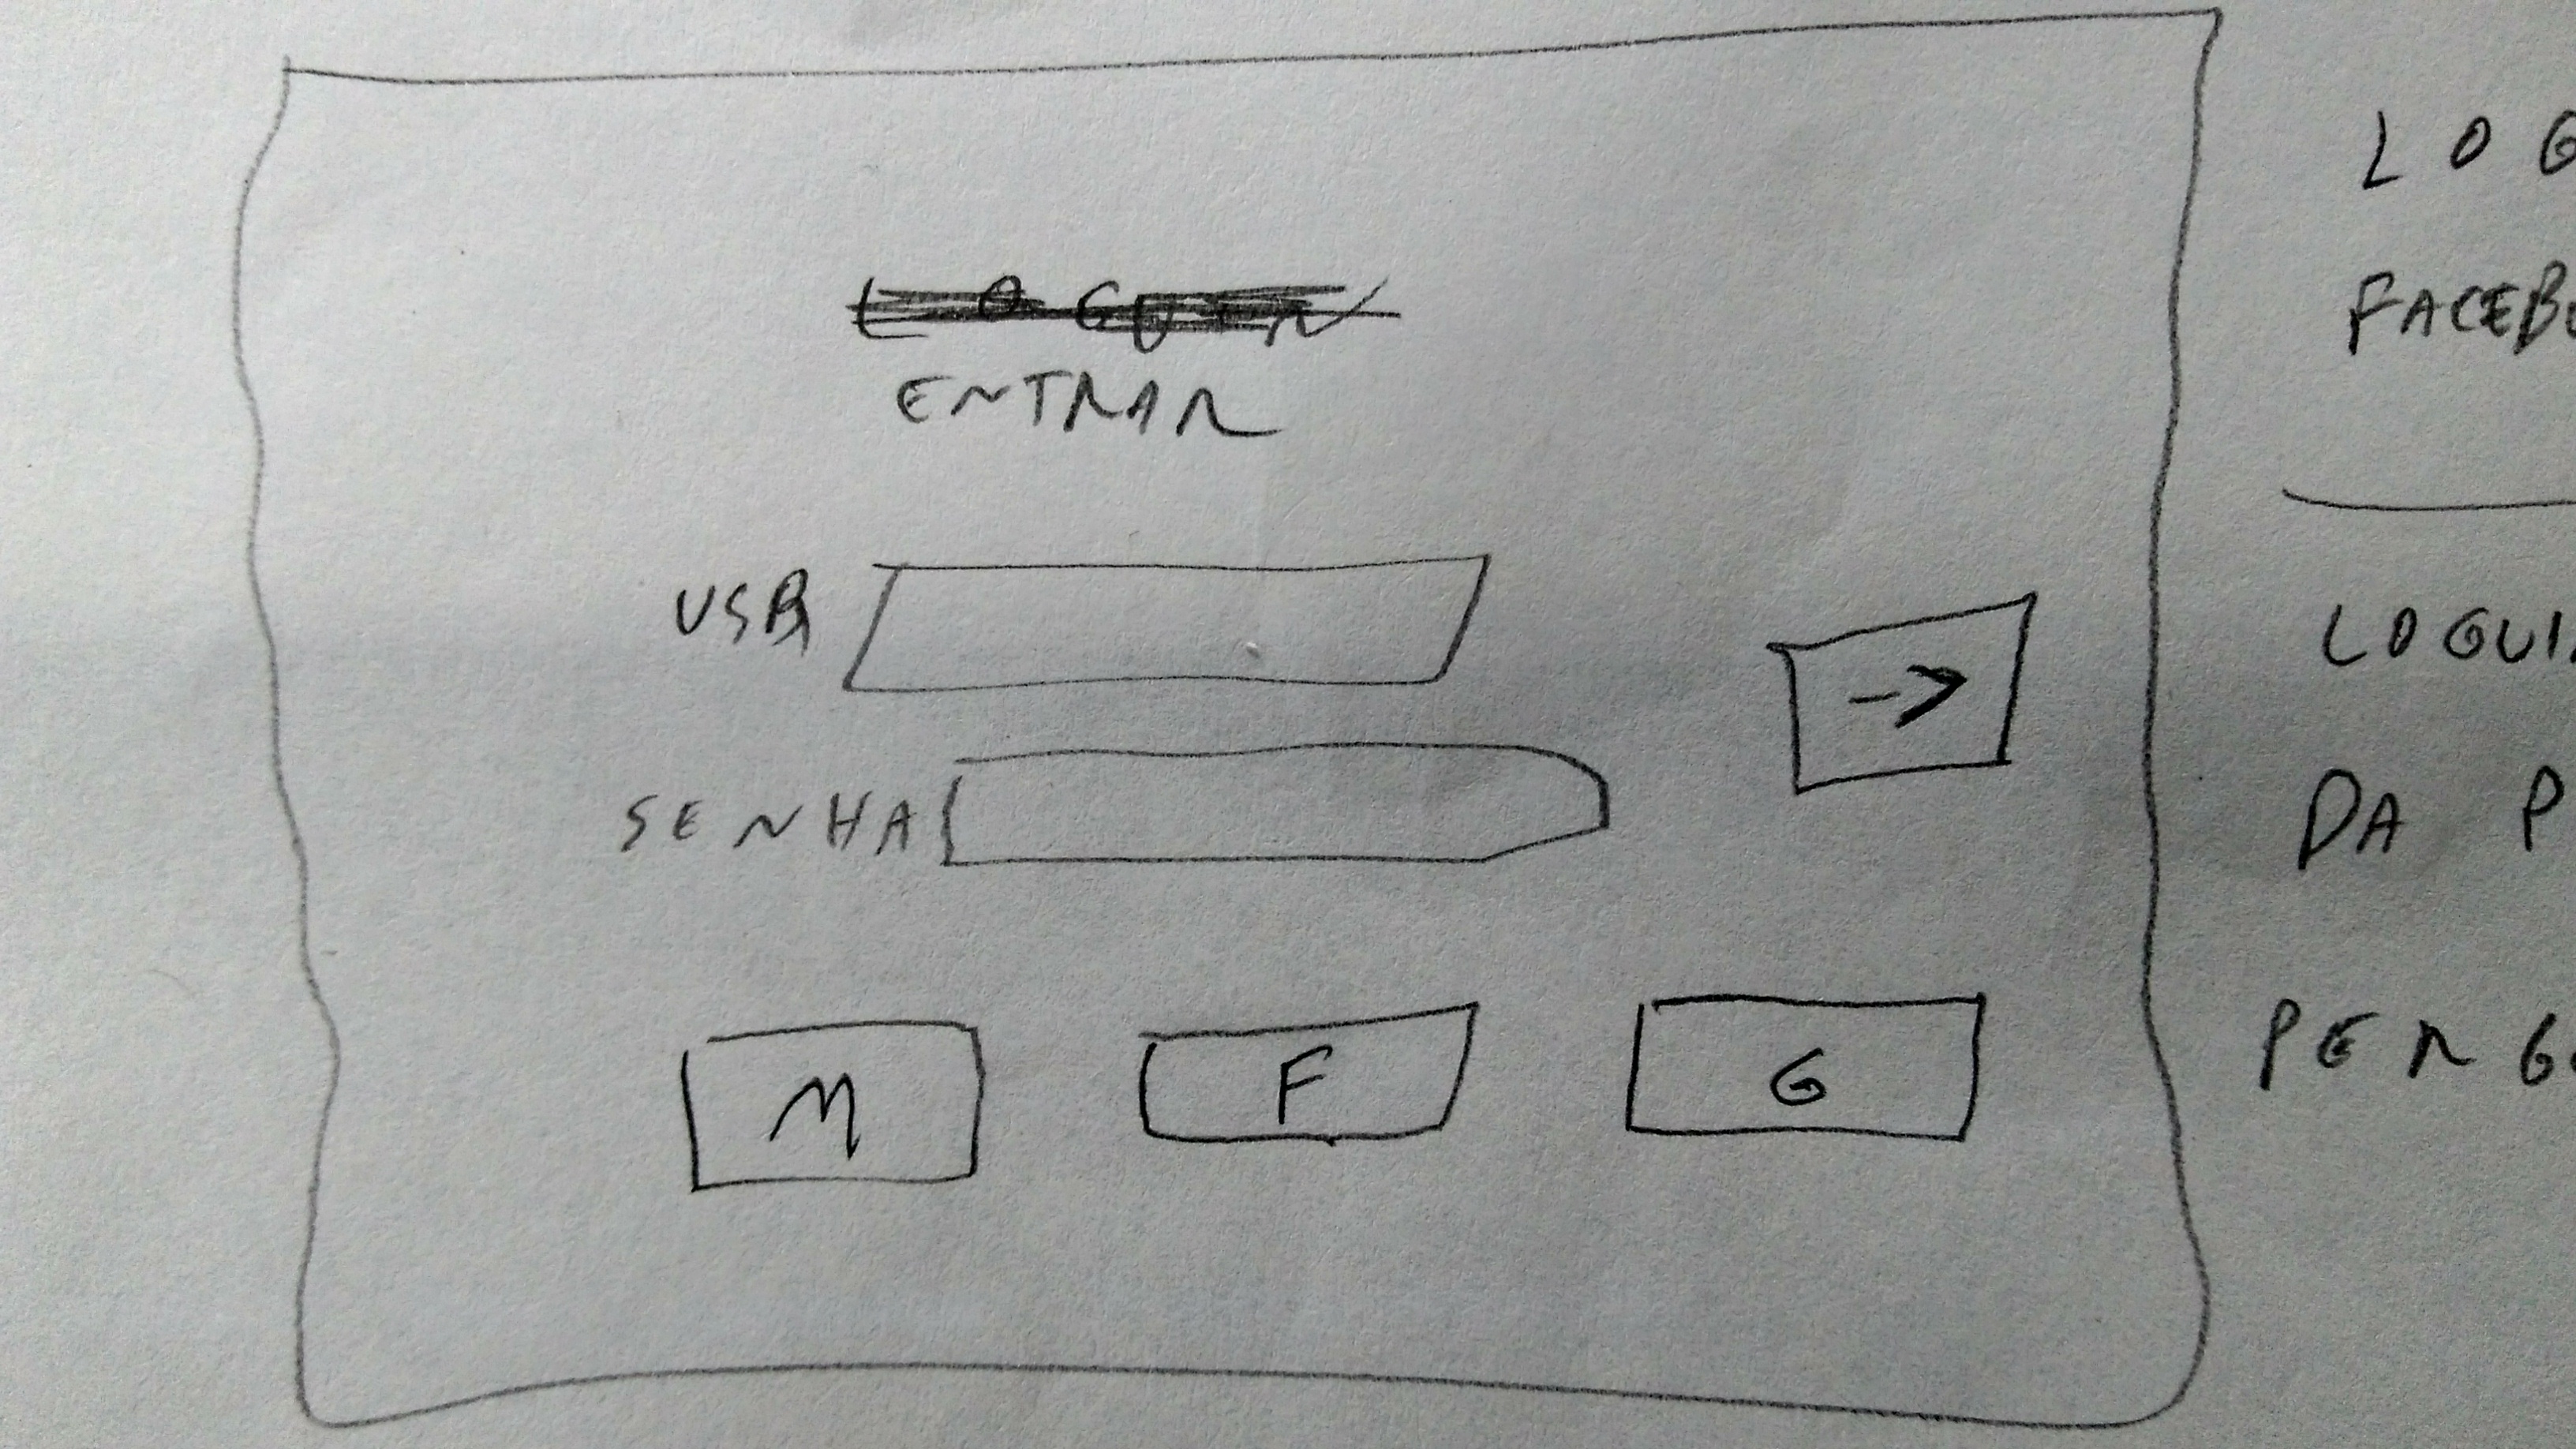 ENTRAR
USR
SENHA
->
M
F
G
LOG
FACEB
LOGUI
DA P
PERG